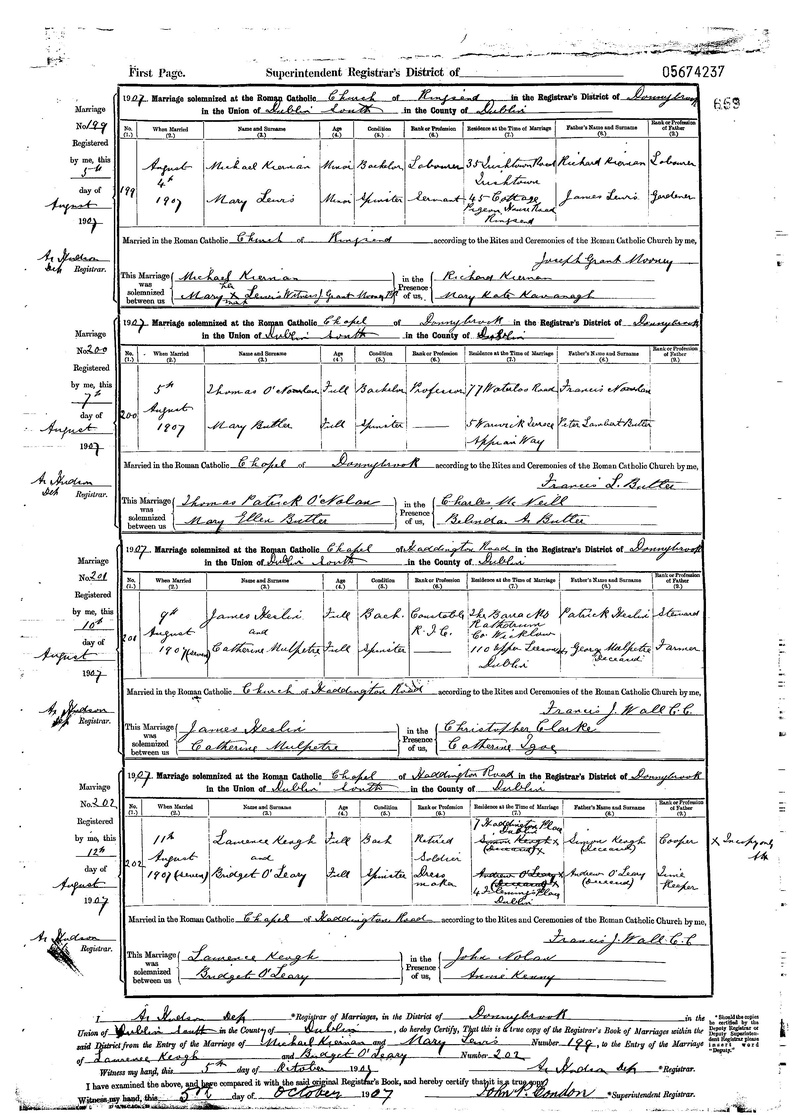 First Page. Superintendent Registrar's District of 05674237
669
1907 Marriage solemnized at the Roman Catholic Church of Ringsend in the Registrar's District of Donnybrook
in the Union of Dublin South in the County of Dublin
Marriage
No 199
Registered
by me, this
5th
day of
August
1907
A. Hudson
Dep Registrar.
No. (1.) When Married (2.) Name and Surname (3.) Age (4.) Condition (5.) Rank or Profession (6.) Residence at the Time of Marriage (7.) Father's Name and Surname (8.) Rank or Profession of Father (9.)
199 August 4th 1907
Michael Kiernan Minor Bachelor Labourer 35 Irishtown Road Irishtown Richard Kiernan Labourer
Mary Lewis Minor Spinster Servant 45 Cottage Pigeon House Road Ringsend James Lewis Gardener
Married in the Roman Catholic Church of Ringsend according to the Rites and Ceremonies of the Roman Catholic Church by me,
Joseph Grant Mooney
This Marriage was solemnized between us
Michael Kiernan
Mary X Lewis her mark
in the Presence of us,
Richard Kiernan
Mary Kate Kavanagh
1907 Marriage solemnized at the Roman Catholic Chapel of Donnybrook in the Registrar's District of Donnybrook
in the Union of Dublin South in the County of Dublin
Marriage
No 200
Registered
by me, this
7th
day of
August
1907
A. Hudson
Dep Registrar.
No. (1.) When Married (2.) Name and Surname (3.) Age (4.) Condition (5.) Rank or Profession (6.) Residence at the Time of Marriage (7.) Father's Name and Surname (8.) Rank or Profession of Father (9.)
200 5th August 1907
Thomas Full Bachelor Professor 77 Waterloo Road Francis
Mary Butler Full Spinster — 5 Warwick Terrace Appian Way Peter Lambert Butler
Married in the Roman Catholic Chapel of Donnybrook according to the Rites and Ceremonies of the Roman Catholic Church by me,
Francis L. Butler
This Marriage was solemnized between us
Thomas Patrick O'Nolan
Mary Ellen Butler
in the Presence of us,
Charles McNeill
Belinda A Butler
1907 Marriage solemnized at the Roman Catholic Chapel of Haddington Road in the Registrar's District of Donnybrook
in the Union of Dublin South in the County of Dublin
Marriage
No. 201
Registered
by me, this
10th
day of
August
1907
A. Hudson
Dep Registrar.
No. (1.) When Married (2.) Name and Surname (3.) Age (4.) Condition (5.) Rank or Profession (6.) Residence at the Time of Marriage (7.) Father's Name and Surname (8.) Rank or Profession of Father (9.)
201 9th August 1907 (seven)
James Heslin Full Bach. Constable R.I.C. The Barracks Rathdrum Co. Wicklow Patrick Heslin Steward
and
Catherine Mulpetre Full Spinster 110 Upper Dublin George Mulpetre Deceased Farmer
Married in the Roman Catholic Church of Haddington Road according to the Rites and Ceremonies of the Roman Catholic Church by me,
Francis J. Wall C.C.
This Marriage was solemnized between us
James Heslin
Catherine Mulpetre
in the Presence of us,
Christopher Clarke
Catherine Igoe
1907 Marriage solemnized at the Roman Catholic Chapel of Haddington Road in the Registrar's District of Donnybrook
in the Union of Dublin South in the County of Dublin
Marriage
No. 202
Registered
by me, this
12th
day of
August
1907
A. Hudson
Registrar.
No. (1.) When Married (2.) Name and Surname (3.) Age (4.) Condition (5.) Rank or Profession (6.) Residence at the Time of Marriage (7.) Father's Name and Surname (8.) Rank or Profession of Father (9.)
202 11th August 1907 (seven)
Laurence Keogh Full Bach Retired Soldier 7 Haddington Place Dublin Simon Keogh (Deceased) x Simon Keogh (Deceased) Cooper
and
Bridget O'Leary Full Spinster Dress maker Andrew O'Leary x (Deceased) x 4 Flemings Place Dublin Andrew O'Leary (Deceased) Time Keeper
X In copy only
Married in the Roman Catholic Chapel of Haddington Road according to the Rites and Ceremonies of the Roman Catholic Church by me,
Francis J. Wall C.C
This Marriage was solemnized between us
Laurence Keogh
Bridget O'Leary
in the Presence of us,
John Nolan
Annie Kenny
I A. Hudson Dep *Registrar of Marriages, in the District of Donnybrook in the
Union of Dublin South in the County of Dublin, do hereby Certify, That this is a true copy of the Registrar's Book of Marriages within the
said District from the Entry of the Marriage of Michael Kiernan and Mary Lewis Number 199, to the Entry of the Marriage
of Laurence Keogh and Bridget O'Leary Number 202
Witness my hand, this 5th day of October 1907 A. Hudson Dep *Registrar.
I have examined the above, and have compared it with the said original Registrar's Book, and hereby certify that it is a true copy
Witness my hand, this 5th day of October 1907 John P. Condon *Superintendent Registrar.
*Should the copies be certified by the Deputy Registrar or Deputy Superintendent Registrar please insert word "Deputy."